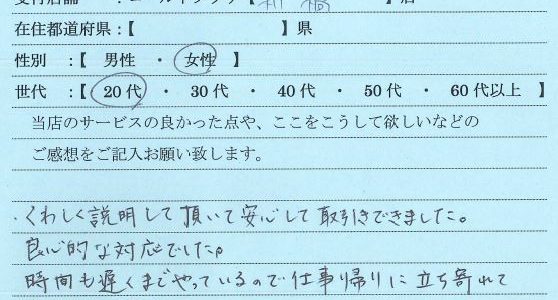 在住都道府県:【 】県
性別 :【 男性 ・ 女性 】
世代 :【 20代 ・ 30代 ・ 40代 ・ 50代 ・ 60代以上 】
当店のサービスの良かった点や、ここをこうして欲しいなどの
ご感想をご記入お願い致します。
・くわしく説明して頂いて安心して取引きできました。
良心的な対応でした。
時間も遅くまでやっているので仕事帰りに立ち寄れて